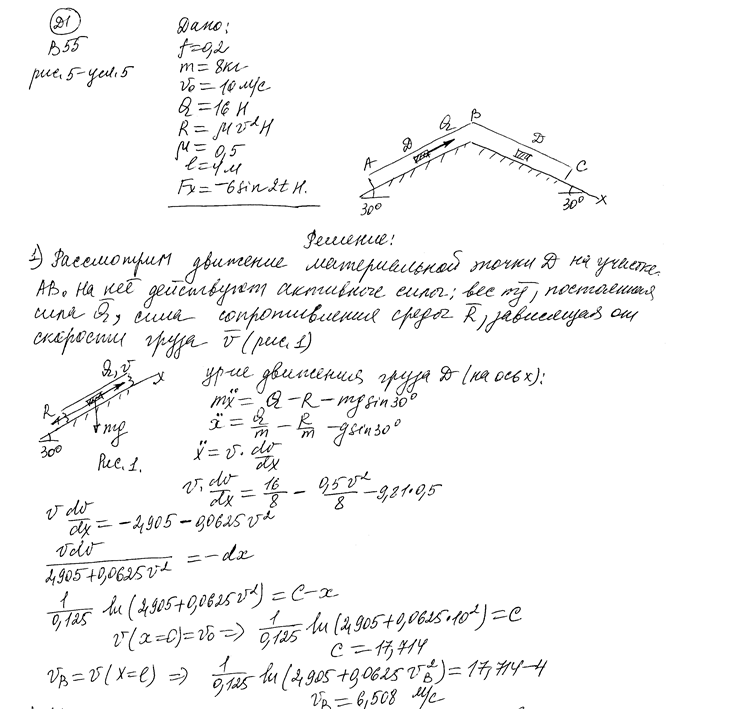 Д1
В55
рис.5-усл.5
Дано:
f=0,2
m=8кг
v₀=10м/с
Q=16 Н
R=μv²Н
μ=0,5
l=4м
Fx=-6sin2t Н.
A D Q B D C
30° 30° x
Решение:
1) Рассмотрим движение материальной точки D на участке
АВ. На неё действуют активные силы; вес m̄g, постоянная
сила Q̄, сила сопротивления среды R̄, зависящая от
скорости груза v̄ (рис.1)
Q̄,v̄ x
R
mg
30°
Рис.1.
ур-ие движения груза D (на ось x):
mẍ = Q-R-mgsin30°
ẍ = Q/m - R/m - gsin30°
ẍ = v·dv/dx
v·dv/dx = 16/8 - 0,5v²/8 - 9,81·0,5
v dv/dx = -2,905-0,0625v²
vdv/(2,905+0,0625v²) = -dx
1/0,125 ln(2,905+0,0625v²)=C-x
v(x=0)=v₀ => 1/0,125 ln(2,905+0,0625·10²)=C
C=17,714
v_B=v(x=l) => 1/0,125 ln(2,905+0,0625 v_B²)=17,714-4
v_B=6,508 м/с